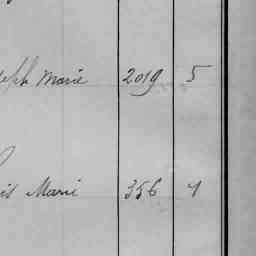 seph Marie 2019 5
is Marie 356 4